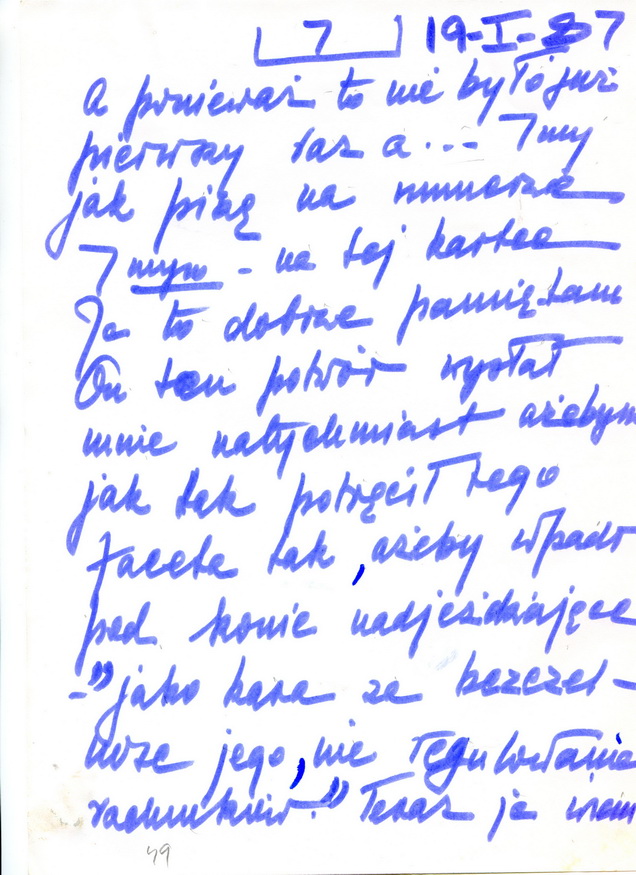 7 19-I-87
A ponieważ to nie było już
pierwszy raz a... 7my
jak piszę na numerze
7mym - na tej kartce
Ja to dobrze pamiętam
On ten potwór wysłał
mnie natychmiast ażebym
jak tak potrącił tego
faceta tak, ażeby wpadł
pod konie nadjeżdżające
-"jako kara za bezczel-
ność jego, nie regulowanie
rachunków." Teraz ja wiem
49